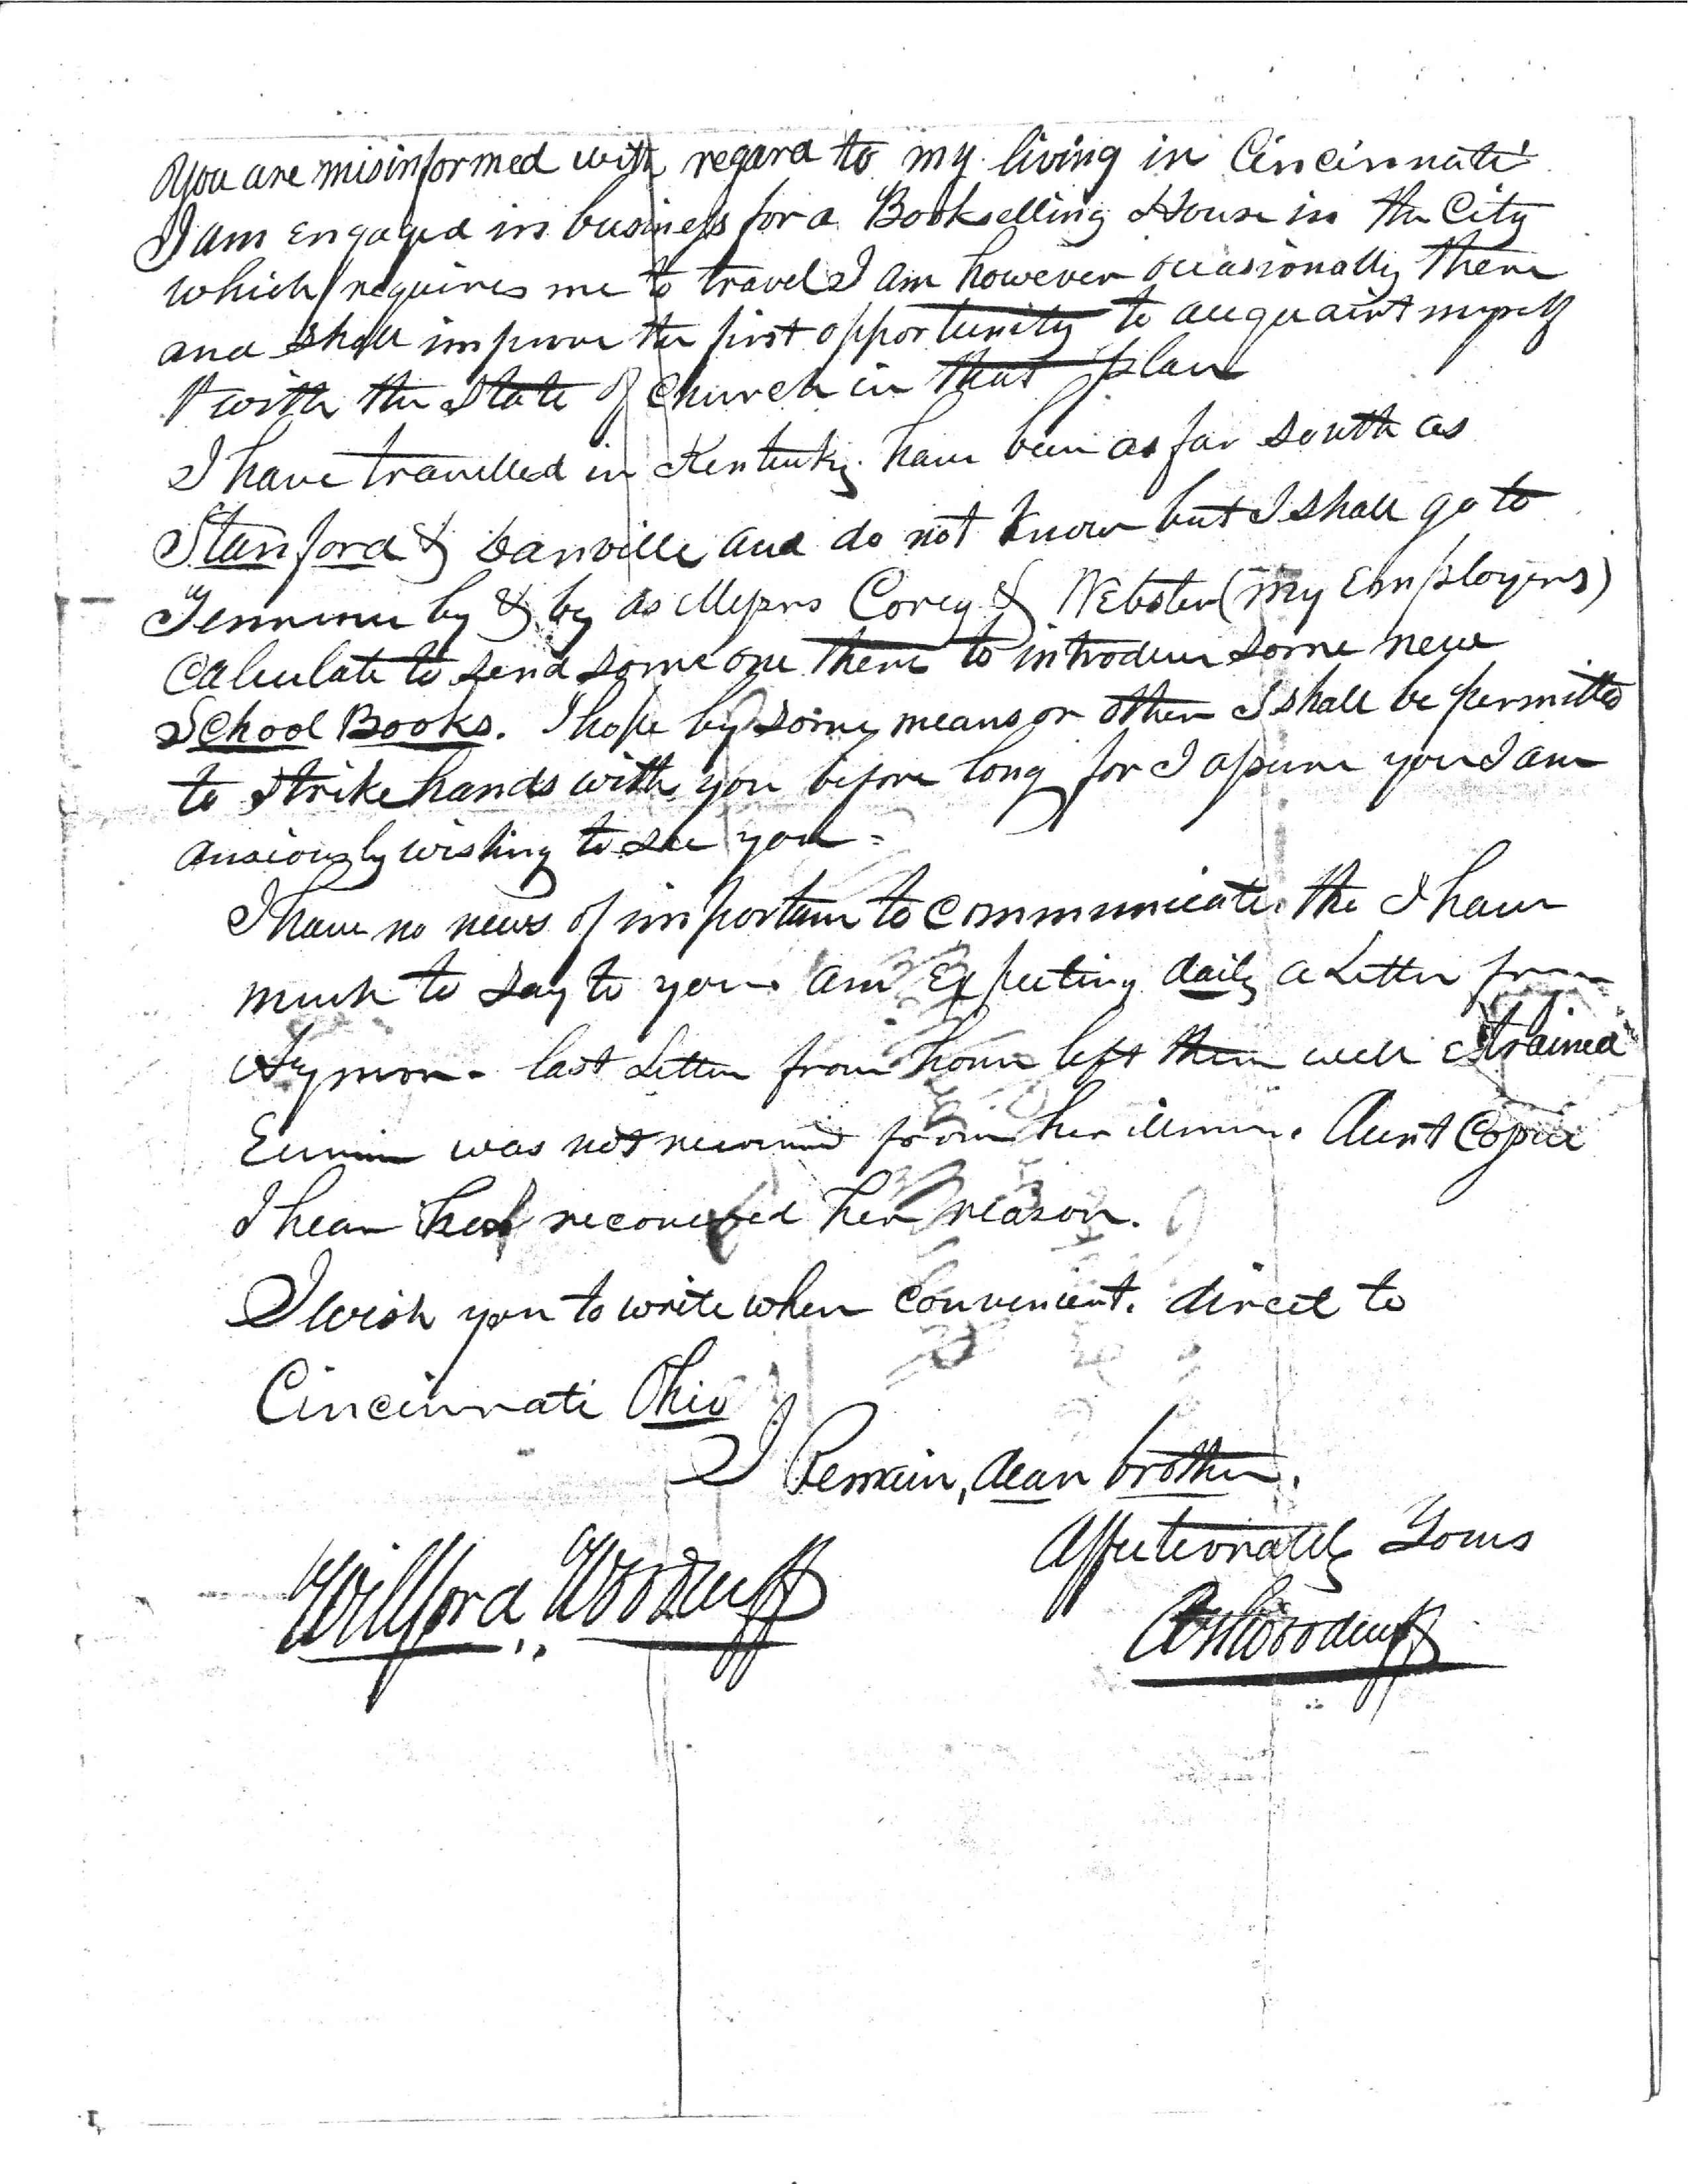 You are misinformed with regard to my living in Cincinnati
I am engaged in business for a Bookselling House in the City
which requires me to travel I am however occasionally there
and shall improve the first opportunity to acquaint myself
with the State of Church in that place
I have travelled in Kentucky. have been as far south as
Stanford & Danville and do not know but I shall go to
Tennessee by & by as Messrs Corey & Webster (my Employers)
calculate to send some one there to introduce some new
School Books. I hope by some means or other I shall be permitted
to strike hands with you before long for I assure you I am
anxiously wishing to see you =
I have no news of importance to communicate. tho I have
much to say to you. am Expecting daily a Letter from
Ozem. last Letter from home left them well
Eunice was not recovered from her illness. Aunt
I hear has recovered her reason.
I wish you to write when convenient. direct to
Cincinnati Ohio
I Remain, dear brother.
Affectionately Yours
Willford Woodruff
Woodruff